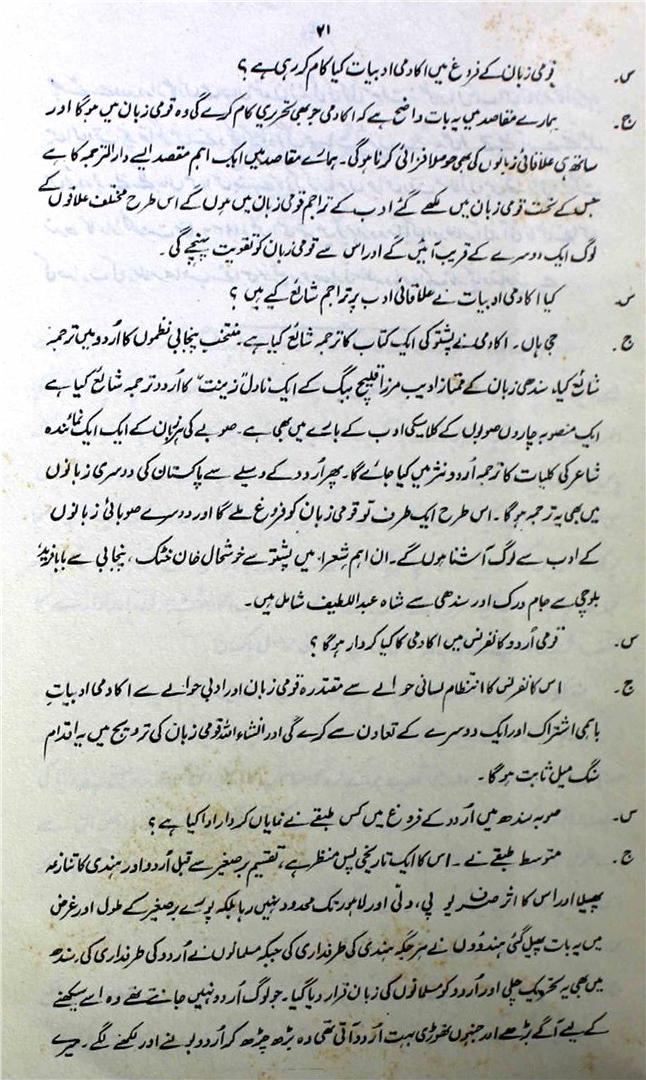 ۲۱
س۔ قومی زبان کے فروغ میں اکادمی ادبیات کیا کام کر رہی ہے؟
ج۔ ہمارے مقاصد میں یہ بات واضح ہے کہ اکادمی جو بھی تحریری کام کرے گی وہ قومی زبان میں ہو گا اور
ساتھ ہی علاقائی زبانوں کی بھی حوصلا فزائی کرنا ہو گی۔ ہمارے مقاصد میں ایک اہم مقصد ایسے دارالترجمہ کا ہے
جس کے تحت قومی زبان میں لکھے گئے ادب کے تراجم قومی زبان میں ہوں گے اس طرح مختلف علاقوں کے
لوگ ایک دوسرے کے قریب آئیں گے اور اس سے قومی زبان کو تقویت پہنچے گی۔
س۔ کیا اکادمی ادبیات نے علاقائی ادب پر تراجم شائع کیے ہیں؟
ج۔ جی ہاں۔ اکادمی نے پشتو کی ایک کتاب کا ترجمہ شائع کیا ہے۔ منتخب پنجابی نظموں کا اُردو میں ترجمہ
شائع کیا، سندھی زبان کے ممتاز ادیب مرزا قلیچ بیگ کے ایک ناول "زینت" کا اُردو ترجمہ شائع کیا ہے
ایک منصوبہ چاروں صوبوں کے کلاسیکی ادب کے بارے میں بھی ہے۔ صوبے کی ہر زبان کے ایک ایک نمائندہ
شاعر کی کلیات کا ترجمہ اُردو نثر میں کیا جائے گا۔ پھر اُردو کے وسیلے سے پاکستان کی دوسری زبانوں
میں بھی یہ ترجمہ ہو گا۔ اس طرح ایک طرف تو قومی زبان کو فروغ ملے گا اور دوسرے صوبائی زبانوں
کے ادب سے لوگ آشنا ہوں گے۔ ان اہم شعراء میں پشتو سے خوشحال خان خٹک، پنجابی سے بابا فریدؒ
بلوچی سے جام درک اور سندھی سے شاہ عبداللطیف شامل ہیں۔
س۔ قومی اُردو کانفرنس میں اکادمی کا کیا کردار ہو گا؟
ج۔ اس کانفرنس کا انتظام لسانی حوالے سے مقتدرہ قومی زبان اور ادبی حوالے سے اکادمی ادبیات
باہمی اشتراک اور ایک دوسرے کے تعاون سے کرے گی اور انشاء اللہ قومی زبان کی ترویج میں یہ اقدام
سنگ میل ثابت ہو گا۔
س۔ صوبہ سندھ میں اُردو کے فروغ میں کس طبقے نے نمایاں کردار ادا کیا ہے؟
ج۔ متوسط طبقے نے۔ اس کا ایک تاریخی پس منظر ہے، تقسیم برصغیر سے قبل اُردو اور ہندی کا تنازعہ
پھیلا اور اس کا اثر صرف یو پی، دلّی اور لاہور تک محدود نہیں رہا بلکہ پورے برصغیر کے طول اور عرض
میں یہ بات پھیل گئی ہندوؤں نے ہر جگہ ہندی کی طرفداری کی جبکہ مسلمانوں نے اُردو کی طرفداری کی۔ سندھ
میں بھی یہ تحریک چلی اور اُردو کو مسلمانوں کی زبان قرار دیا گیا۔ جو لوگ اُردو نہیں جانتے تھے وہ اسے سیکھنے
کے لیے آگے بڑھے اور جنہیں تھوڑی بہت اُردو آتی تھی وہ بڑھ چڑھ کر اُردو بولنے اور لکھنے لگے۔ میرے